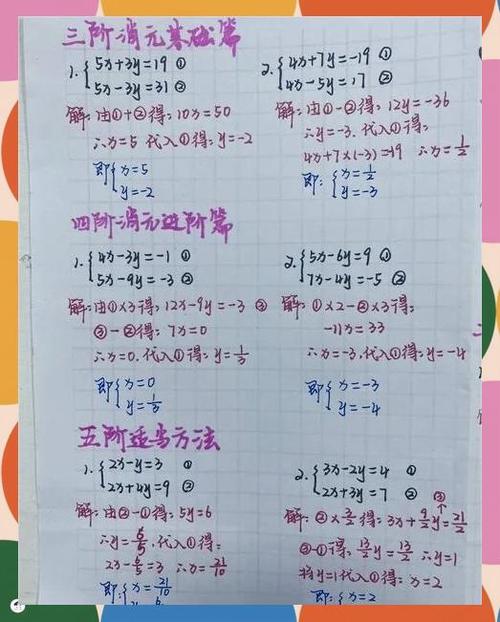 三阶消元基础篇
1. {5x+3y=19 ①
5x-3y=31 ②
解:由①+②得:10x=50
∴x=5 代入①得:y=-2
即{x=5
y=-2
2. {4x+7y=-19 ①
4x-5y=17 ②
解:由①-②得:12y=-36
∴y=-3. 代入①得:
4x+7×(-3)=19 ∴x=1/2
即:{x=1/2
y=-3
四阶消元进阶篇
1. {4x-3y=-1 ①
5x-9y=-3 ②
解:由①×3得:12x-9y=-3 ③
③-②得:7x=0
∴x=0.代入①得:y=1/3
即{x=0
y=1/3
2. {5x-6y=9 ①
7x-4y=-5 ②
解:①×2-②×3得:
-11x=33
∴x=-3.代入①得:y=-4
即{x=-3
y=-4
五阶适当方法
1. {2x-y=3 ①
2x+4y=9 ②
解:由②-①得:5y=6
∴y=6/5.代入①得:
2x-6/5=3 ∴x=21/10
即:{x=21/10
2. {3x-2y=4 ①
2x+3y=7 ②
③
解:②×3/2得:3x+9/2y=21/2
③-①得:13/2y=13/2 ∴y=1
将y=1代入①得:x=2
即:{x=2